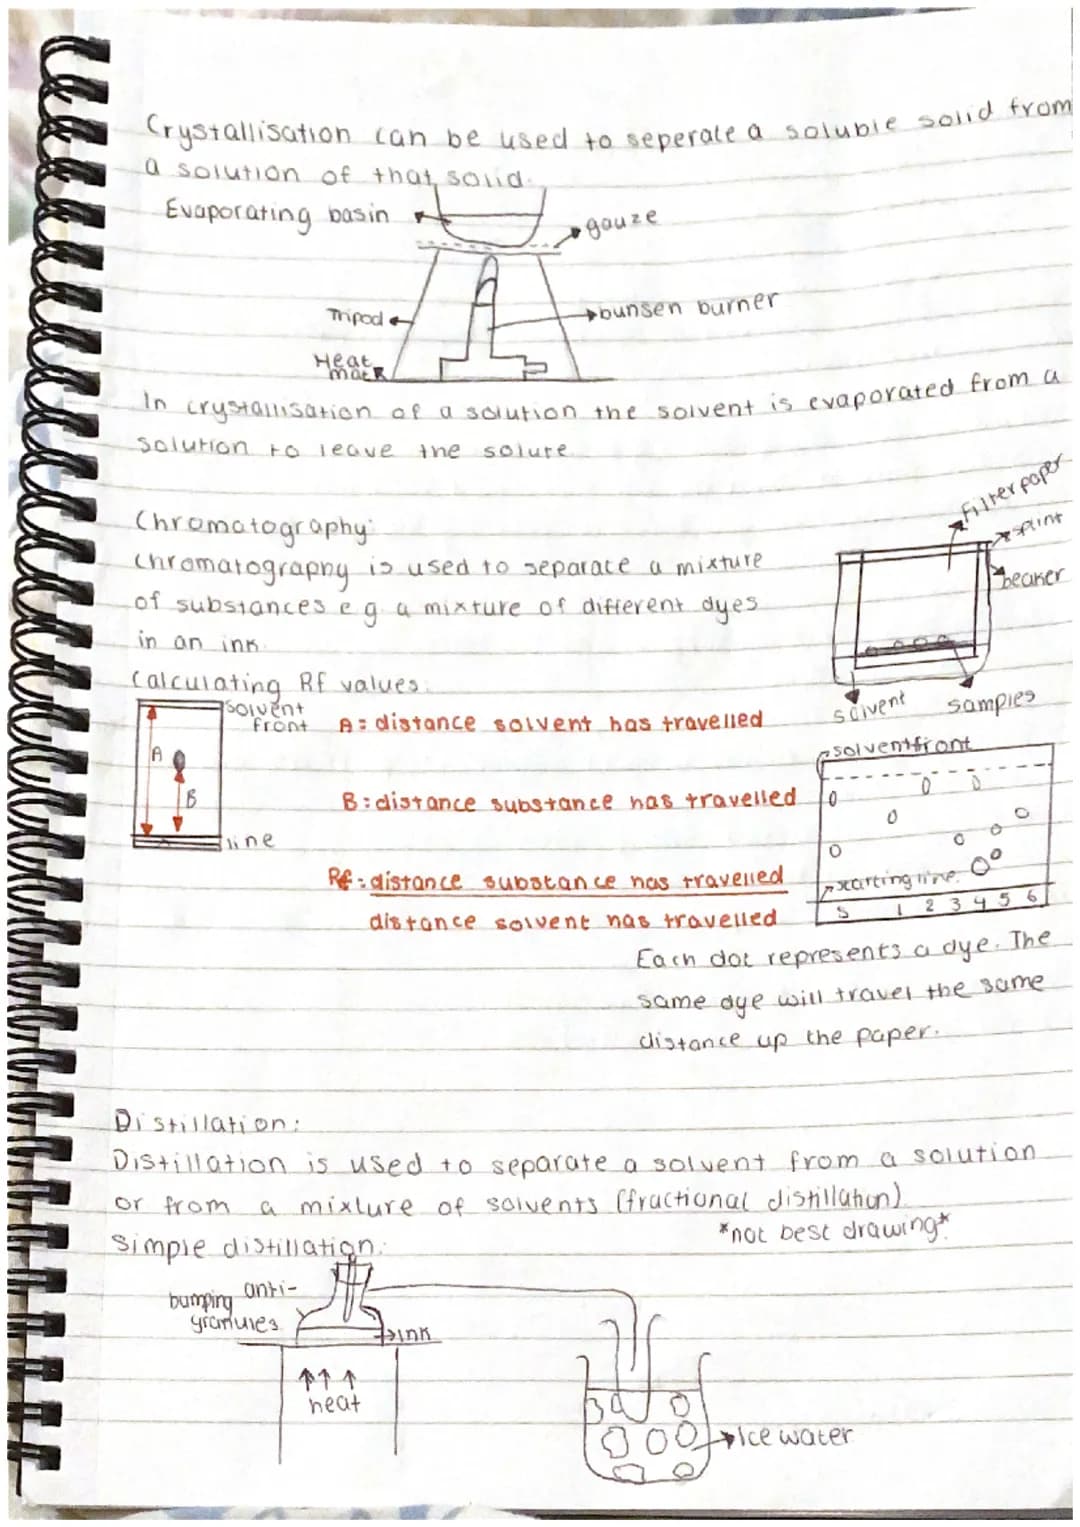 Crystallisation can be used to seperate a soluble solid from
a solution of that solid.
Evaporating basin
gauze
Tripod
bunsen burner
Heat
mat
In crystallisation of a solution the solvent is evaporated from a
solution to leave the solute.
Chromatography:
Chromatography is used to separate a mixture
of substances e.g. a mixture of different dyes
in an ink.
Filter paper
splint
beaker
solvent
samples
Calculating Rf values:
solvent
front
A
B
line
A: distance solvent has travelled
B: distance substance has travelled
Rf: distance substance has travelled
distance solvent has travelled
solventfront
starting line.
S 1 2 3 4 5 6
Each dot represents a dye. The
same dye will travel the same
distance up the paper.
Distillation:
Distillation is used to separate a solvent from a solution
or from a mixture of solvents (fractional distillation)
*not best drawing*
Simple distillation:
anti-
bumping
granules
ink
heat
Ice water